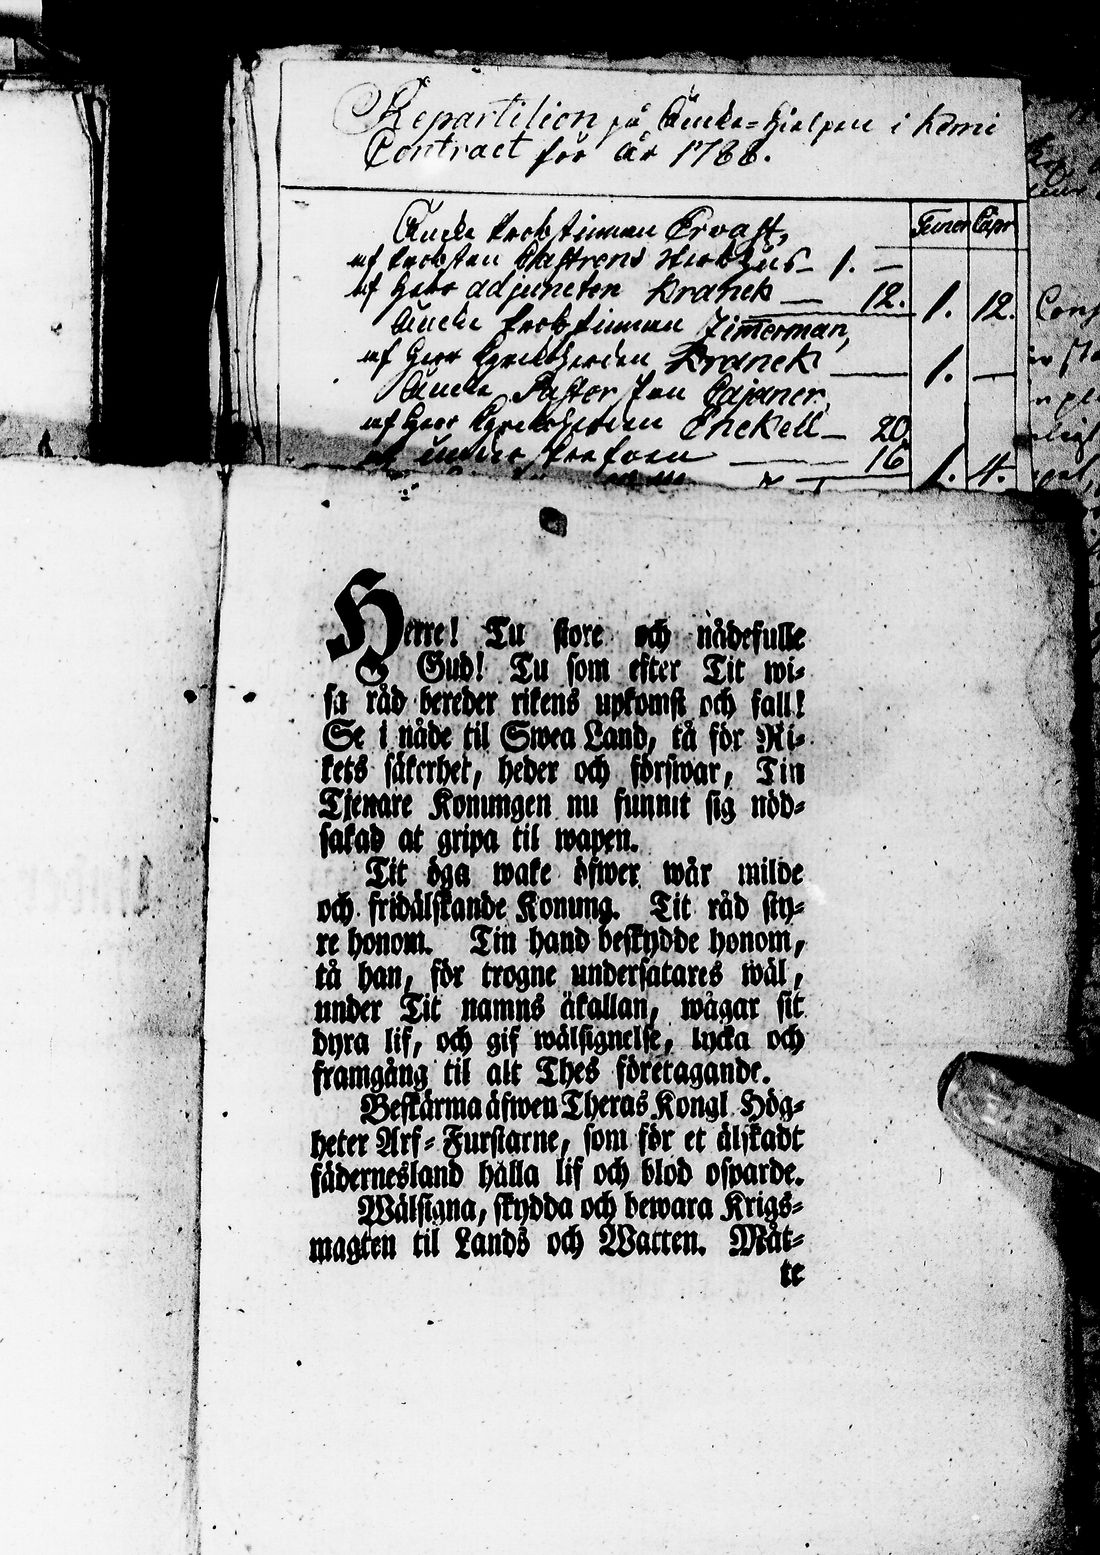 Repartition på Äncke-Hjelpen i Kemi
Contract för år 1788.
Tunor Capr
Äncke Probstinnan Ervast,
af Probsten Castrens Sterbhus - 1. -
af Herr adjuncten Kranck - 12. 1. 12.
Äncke Probstinnan Zimmerman,
af Herr Kyrckoherden Kranck - 1. -
Äncke Pastorskan Cajaner,
af Herr Kyrckoherden Chckell - 20
16 1. 4.
Herre! Tu store och nådefulle
Gud! Tu som efter Tit wi-
sa råd bereder rikens upkomst och fall!
Se i nåde til Swea Land, tå för Ri-
kets säkerhet, heder och förswar, Tin
Tjenare Konungen nu funnit sig nöd-
sakad at gripa til wapen.
Tit öga wake öfwer wår milde
och fridälskande Konung. Tit råd sty-
re honom. Tin hand beskydde honom,
tå han, för trogne undersåtares wäl,
under Tit namns åkallan, wågar sit
dyra lif, och gif wälsignelse, lycka och
framgång til alt Thes företagande.
Beskärma äfwen Theras Kongl. Hög-
heter Arf-Furstarne, som för et älskadt
fädernesland hålla lif och blod osparde.
Wälsigna, skydda och bewara Krigs-
magten til Lands och Watten. Måt-
te